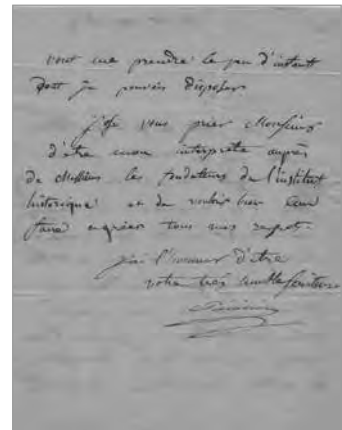 vont me prendre le peu d'instant
dont je pouvois disposer
j'ose vous prier Monsieur
d'etre mon interprète auprès
de Messieurs les fondateurs de l'institut
historique et de vouloir bien leur
faire agréer tous mes respets.
j'ai l'honneur d'etre
votre très humble serviteur